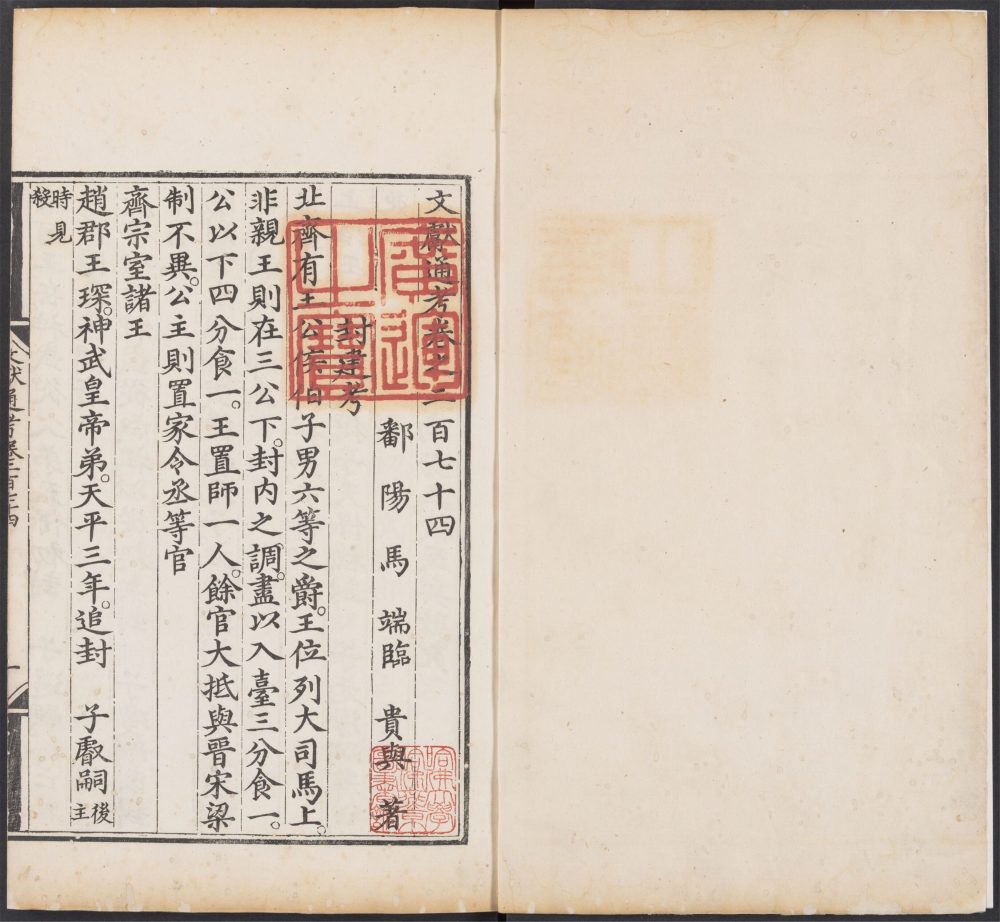 文獻通考卷之二百七十四
鄱陽馬端臨貴與著
封建考
北齊有王公侯伯子男六等之爵。王位列大司馬上。
非親王則在三公下。封內之調。盡以入臺三分食一。
公以下四分食一。王置師一人。餘官大抵與晉宋梁
制不異。公主則置家令丞等官
齊宗室諸王
趙郡王琛。神武皇帝弟。天平三年。追封 子叡嗣 後主
時見殺
廣運之寶